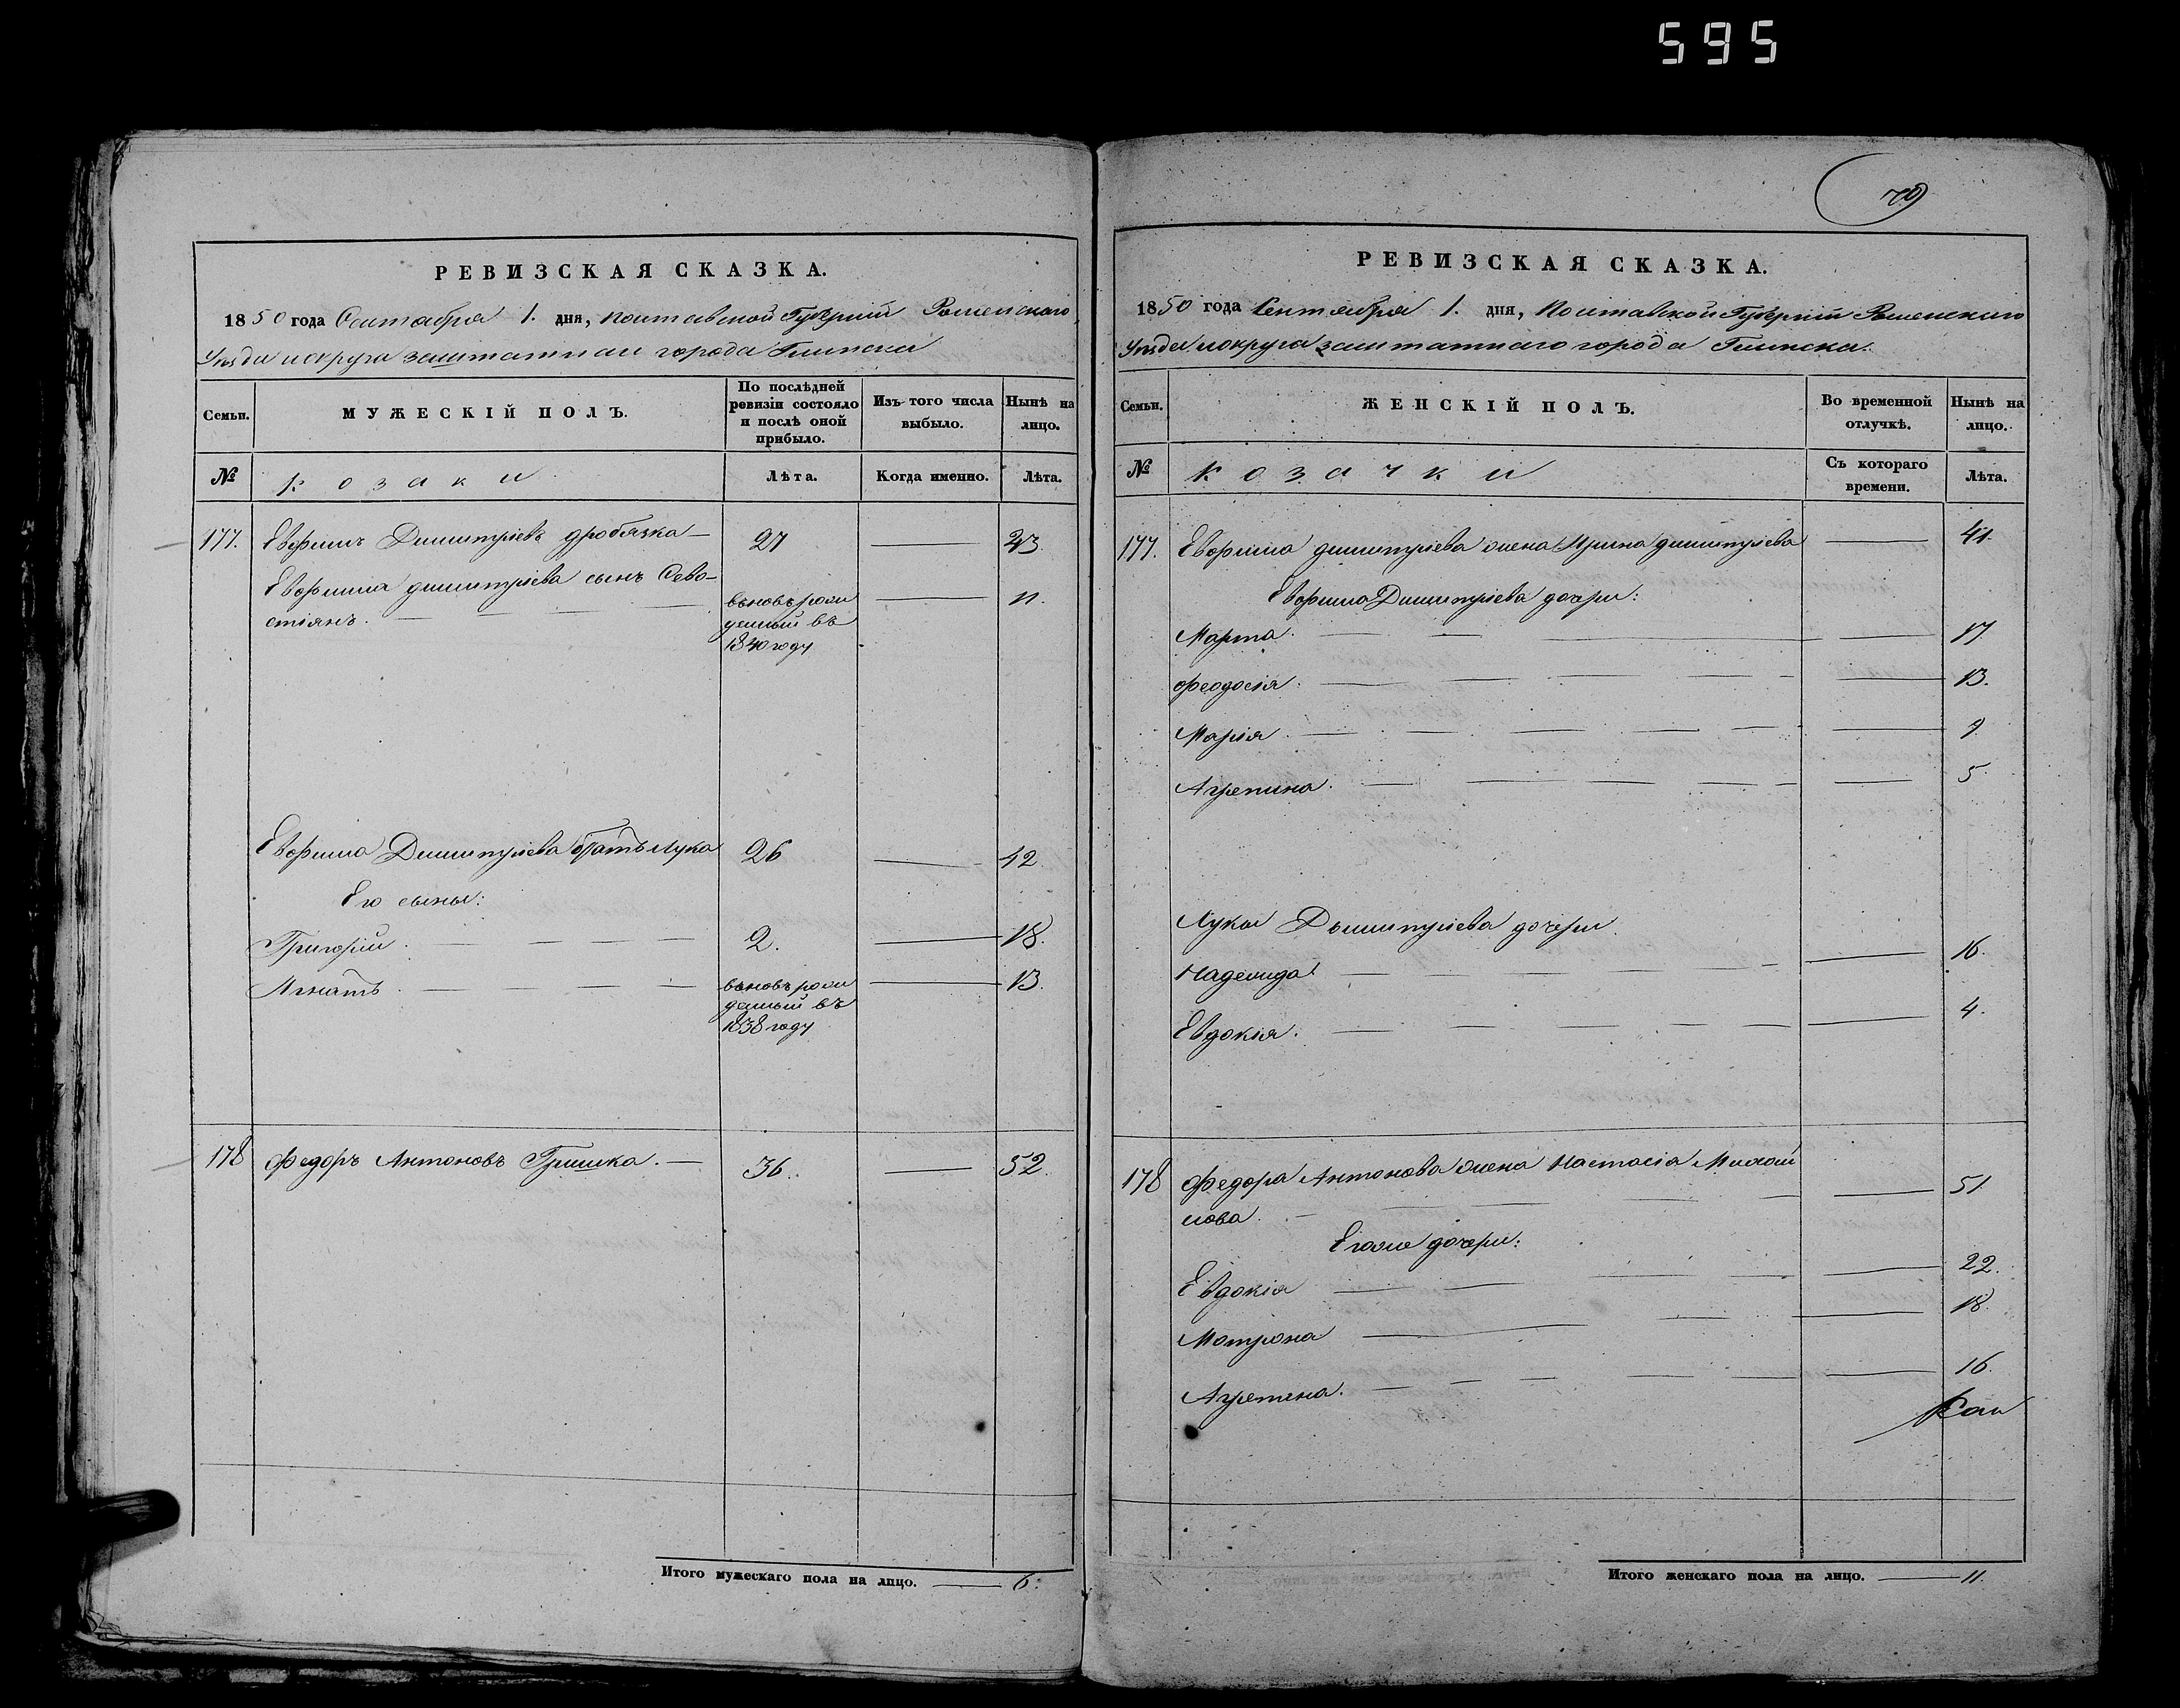 595
79
РЕВИЗСКАЯ СКАЗКА.
1850 года Сентября 1. дня, Полтавской Губерніи Роменского
Уѣзда и округа заштатнаго города Глинска
Семьи.
МУЖЕСКІЙ ПОЛЪ.
По послѣдней ревизіи состояло и послѣ оной прибыло.
Изъ того числа выбыло.
Нынѣ на лицо.
№
Козаки
Лѣта.
Когда именно.
Лѣта.
177. Евфимъ Димитріевъ Дробязка — 27 — 43.
Евфима Димитріева сынъ Сево-
стіянъ. вновь рож — 11.
денный въ
1840 году
Евфима Димитріева братъ Лука 26 — 42.
Его сыны:
Григорій. 2. — 18.
Игнатъ. вновь рож — 13.
денный въ
1838 году
178 Федоръ Антоновъ Гришка. — 36. — 52.
Итого мужескаго пола на лицо. — 6.
РЕВИЗСКАЯ СКАЗКА.
1850 года Сентября 1. дня, Полтавской Губерніи Роменскаго
Уѣзда и округа заштатнаго города Глинска.
Семьи.
ЖЕНСКІЙ ПОЛЪ.
Во временной отлучкѣ.
Нынѣ на лицо.
№
Козачки
Съ котораго времени.
Лѣта.
177. Евфима Димитріева жена Ирина Димитріева — 41.
Евфима Димитріева дочери:
Марта. — 17.
Феодосія. — 13.
Марія. — 9.
Агрепина. — 5.
Луки Димитріева дочери.
Надежда. — 16.
Евдокія. — 4.
178 Федора Антонова жена Настасія Михай
лова. — 51.
Егоже дочери:
Евдокія — 22.
Мотрона — 18.
Агрепина. — 16.
Итого женскаго пола на лицо. — 11.